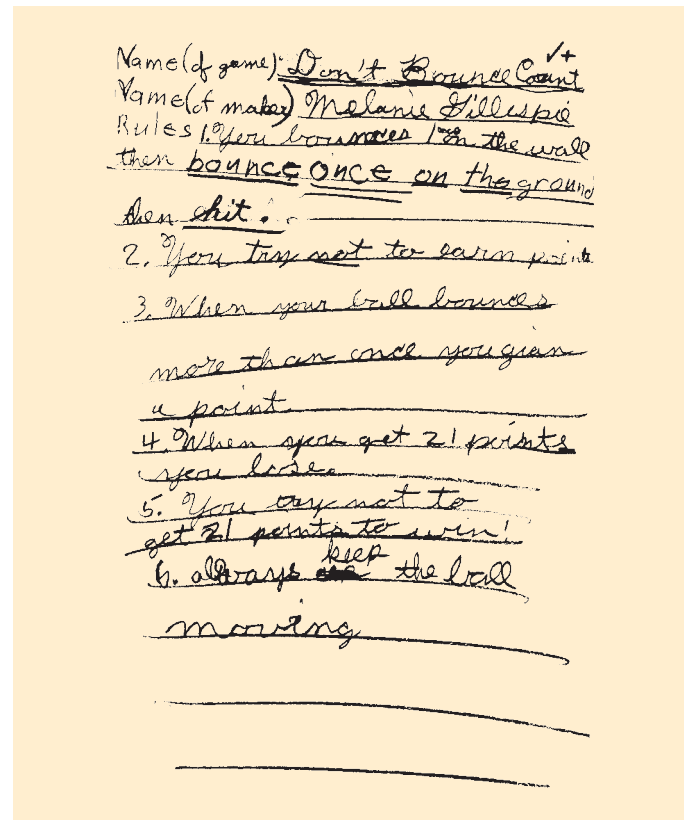 ✓+
Name(of game): Don't Bounce Count
Name(of maker) Melanie Gillespie
Rules 1. You bounces 1 in the wall
then bounce once on the ground
then hit!
2. You try not to earn points
3. When your ball bounces
more than once you gian
a point
4. When you get 21 points
you lose.
5. You try not to
get 21 points to win!
6. always keep the ball
moving